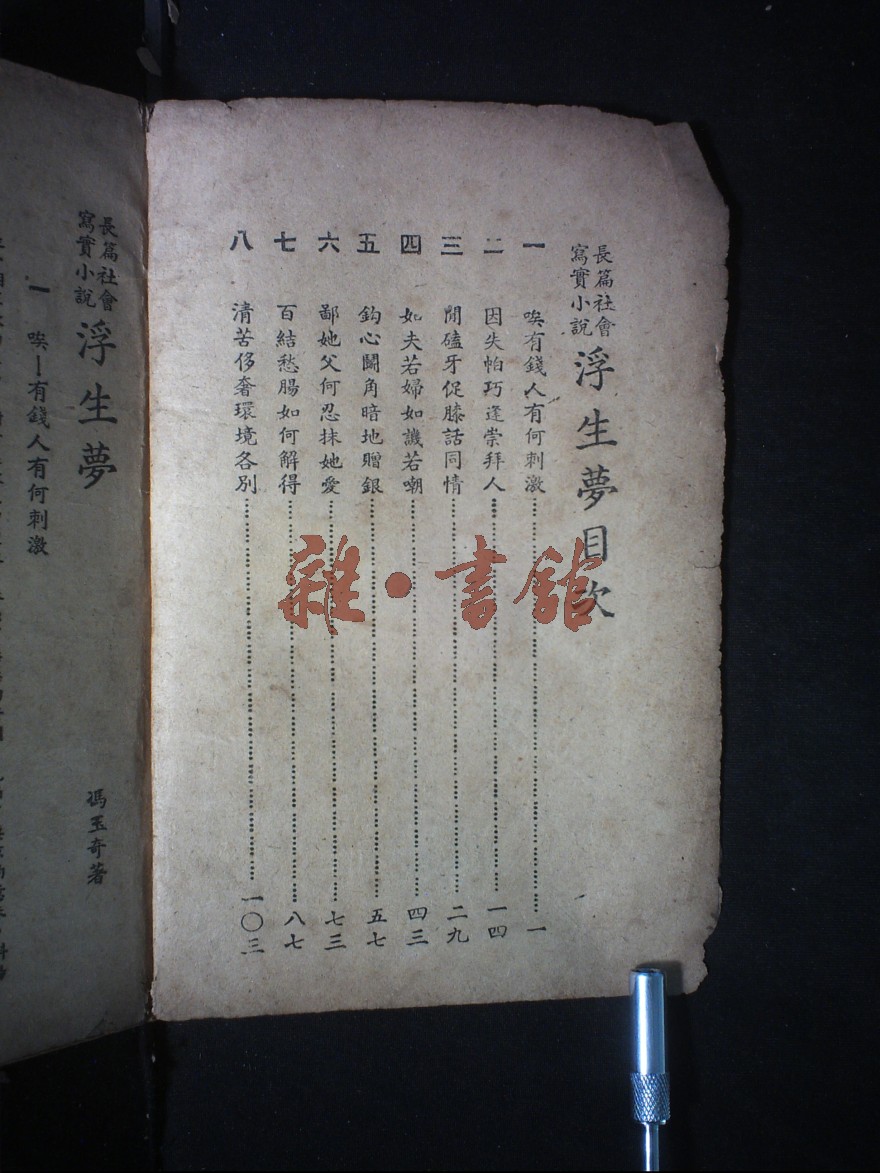 長篇社會
寫實小說
浮生夢目次
一 唉有錢人有何刺激 一
二 因失帕巧逢崇拜人 一四
三 閒磕牙促膝話同情 二九
四 如夫若婦如譏若嘲 四三
五 鈎心鬭角暗地贈銀 五七
六 鄙她父何忍抹她愛 七三
七 百結愁腸如何解得 八七
八 清苦侈奢環境各別 一〇三
雜·書館
長篇社會
寫實小說
浮生夢
馮玉奇著
一 唉—有錢人有何刺激